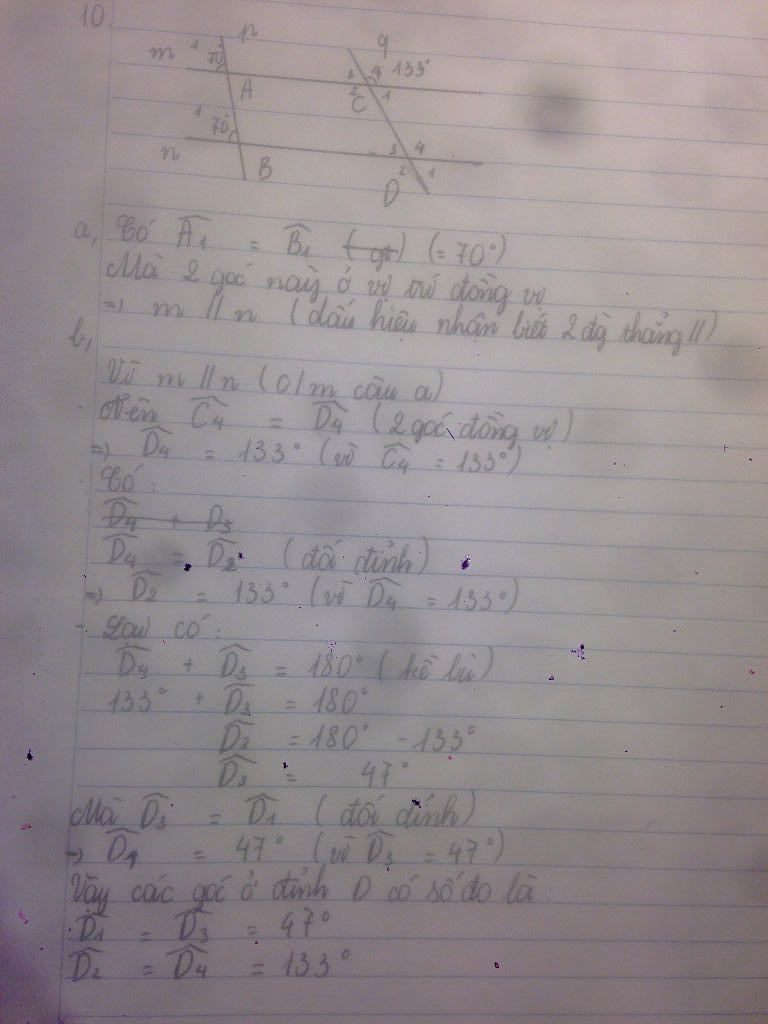 10.
p
q
m 1 70° 3 4 133°
A 2 C 1
1 70°
n B 3 4
D 2 1
a, Có Â1 = B̂1 (gt) (= 70°)
Mà 2 góc này ở vị trí đồng vị
=> m // n (dấu hiệu nhận biết 2 đg thẳng //)
b,
Vì m // n (c/m câu a)
- Nên Ĉ4 = D̂4 (2 góc đồng vị)
=> D̂4 = 133° (vì Ĉ4 = 133°)
Có:
D̂4 + D3
D̂4 = D̂2 (đối đỉnh)
=> D̂2 = 133° (vì D̂4 = 133°)
- Lại có:
D̂4 + D̂3 = 180° (kề bù)
133° + D̂3 = 180°
D̂3 = 180° - 133°
D̂3 = 47°
Mà D̂3 = D̂1 (đối đỉnh)
=> D̂1 = 47° (vì D̂3 = 47°)
Vậy các góc ở đỉnh D có số đo là:
D̂1 = D̂3 = 47°
D̂2 = D̂4 = 133°